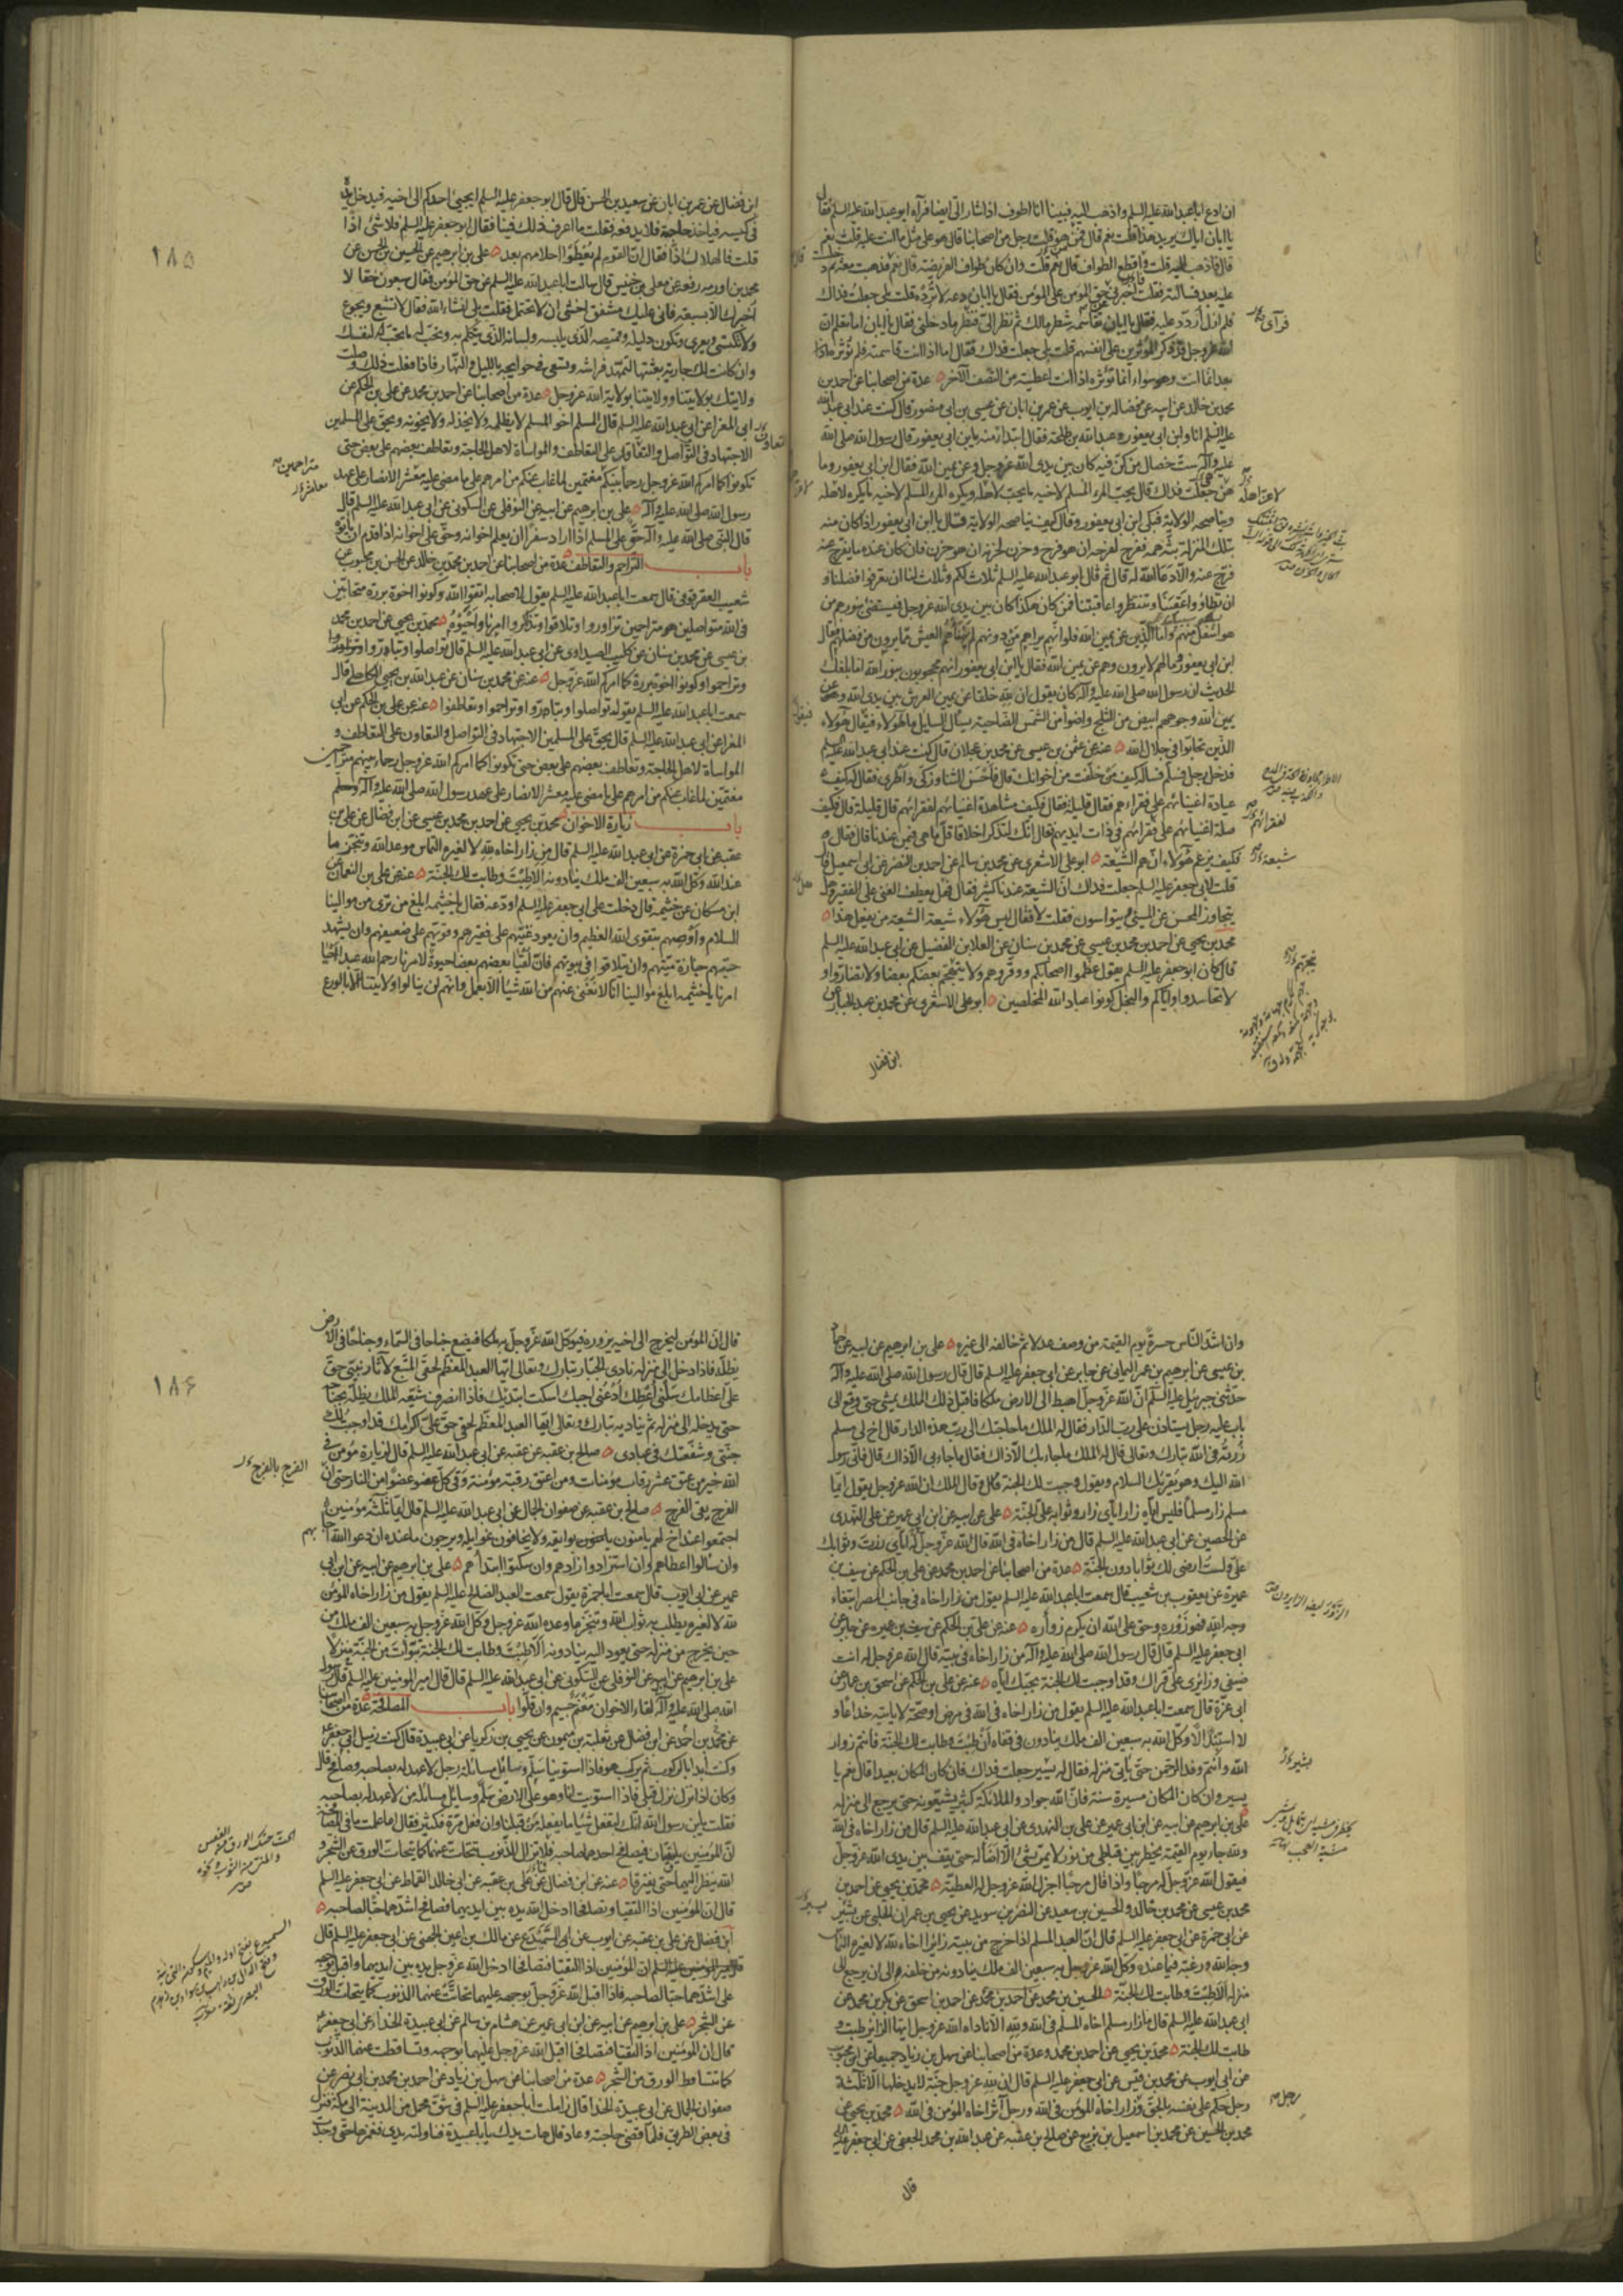 ان ادع اباعبدالله عليه السلم واذهب اليه فبينا انا اطوف اذا شار الىّ ايضا فرآه ابوعبدالله عليه السلم فقال
يا ابان اياك يريد هذا قلت نعم قال فمن هو قلت رجل من اصحابنا قال هو على مثل ما انت عليه قلت نعم
قال فاذهب اليه قلت فاقطع الطواف قال نعم قلت وان كان طواف الفريضة قال نعم فذهبت معه ثم دخلت
عليه بعد فسالته فقلت اخبرنى عن حق المؤمن على المؤمن فقال يا ابان دعه لا ترده قلت بلى جعلت فداك
فلم ازل اردد عليه فقال يا ابان تقاسمه شطر مالك ثم نظر الىّ فنظر ما دخلنى فقال يا ابان اما تعلم ان
الله عزوجل قد ذكر المؤثرين على انفسهم قلت بلى جعلت فداك فقال اما اذا انت قاسمته فلم تؤثره
بعد انما انت وهو سواء انما تؤثره اذا انت اعطيته من النصف الآخر عدة من اصحابنا عن احمد بن
محمد بن خالد عن ابيه عن فضالة بن ايوب عن عمر بن ابان عن عيسى بن ابى منصور قال كنت عند ابى عبدالله
عليه السلم انا وابن ابى يعفور وعبدالله بن طلحة فقال ابتداء منه يا بن ابى يعفور قال رسول الله صلى الله
عليه وآله ست خصال من كن فيه كان بين يدى الله عزوجل وعن يمين الله فقال ابن ابى يعفور وما
هن جعلت فداك قال يحب المرء المسلم لاخيه ما يحب لاهله ويكره المرء المسلم لاخيه ما يكره لاهله
ويناصحه الولاية فبكى ابن ابى يعفور وقال كيف يناصحه الولاية فقال يا ابن ابى يعفور اذا كان منه
بتلك المنزلة بثه همه ففرح لفرحه ان هو فرح وحزن لحزنه ان هو حزن فان كان عنده ما يفرج عنه
فرج عنه والا دعا الله له قال ثم قال ابوعبدالله عليه السلم ثلاث لكم وثلاث لنا ان تعرفوا فضلنا و
ان تطاؤا عقبنا وتنتظروا عاقبتنا فمن كان هكذا كان بين يدى الله عزوجل فيستضئ بنورهم من
هو اسفل منهم واما الذين عن يمين الله فلو انهم يراهم من دونهم لم يهنأهم العيش مما يرون من فضلهم فقال
ابن ابى يعفور وما لهم لا يرون وهم عن يمين الله فقال يا ابن ابى يعفور انهم محجوبون بنور الله اما بلغك
الحديث ان رسول الله صلى الله عليه وآله كان يقول ان لله خلقا عن يمين العرش بين يدى الله وعن
يمين الله وجوههم ابيض من الثلج واضوأ من الشمس الضاحية يسأل السايل ما هؤلاء فيقال هؤلاء
الذين تحابوا فى جلال الله عنه عن عثمن بن عيسى عن محمد بن عجلان قال كنت عند ابى عبدالله عليه السلم
فدخل رجل فسلم فساله كيف من خلفت من اخوانك قال فاحسن الثناء وزكى واطرى فقال له كيف
عيادة اغنيائهم على فقراءهم فقال قليلة فقال فكيف مشاهدة اغنيائهم لفقرائهم قال قليلة قال فكيف
صلة اغنيائهم على فقرائهم فى ذات ايديهم فقال انك لتذكر اخلاقا قل ما هى فيمن عندنا قال فقال
فكيف تزعم هؤلاء انهم الشيعة ابوعلى الاشعرى عن محمد بن سالم عن احمد بن النضر عن ابى اسمعيل قال
قلت لابى جعفر عليه السلم جعلت فداك ان الشيعة عندنا كثير فقال فهل يعطف الغنى على الفقير وهل
يتجاوز المحسن عن المسئ ويتواسون فقلت لا فقال ليس هؤلاء شيعة الشيعة من يفعل هذا
محمد بن يحيى عن احمد بن محمد بن عيسى عن محمد بن سنان عن العلا بن الفضيل عن ابى عبدالله عليه السلم
قال كان ابوجعفر عليه السلم يقول عظموا اصحابكم ووقروهم ولا يتهجم بعضكم بعضا ولا تضاروا و
لا تحاسدوا واياكم والبخل كونوا عباد الله المخلصين ابوعلى الاشعرى عن محمد بن عبد الجبار عن
ابن فضال
١٨٥
ابن فضال عن عمر بن ابان عن سعيد بن الحسن قال قال ابوجعفر عليه السلم ايجئ احدكم الى اخيه فيدخل يده
فى كيسه فياخذ حاجته فلا يدفعه فقلت ما اعرف ذلك فينا فقال ابوجعفر عليه السلم فلا شئ اذا
قلت فالهلاك اذا فقال ان القوم لم يعطوا احلامهم بعد على بن ابرهيم عن الحسين بن الحسن عن
محمد بن اورمه رفعه عن معلى بن خنيس قال سالت اباعبدالله عليه السلم عن حق المؤمن فقال سبعون حقا لا
اخبرك الا بسبعة فانى عليك مشفق اخشى ان لا تحتمل فقلت بلى انشاء الله فقال لا تشبع ويجوع
ولا تكتسى ويعرى وتكون دليله وقميصه الذى يلبسه ولسانه الذى يتكلم به وتحب له ما تحب لنفسك
وان كانت لك جارية بعثتها لتمهد فراشه وتسعى فى حوايجه بالليل والنهار فاذا فعلت ذلك وصلت
ولايتك بولايتنا وولايتنا بولاية الله عزوجل عدة من اصحابنا عن احمد بن محمد عن على بن الحكم عن
ابى المغرا عن ابى عبدالله عليه السلم قال المسلم اخو المسلم لا يظلمه ولا يخذله ولا يخونه ويحق على المسلمين
الاجتهاد فى التواصل والتعاقد على التعاطف والمواساة لاهل الحاجة وتعاطف بعضهم على بعض حتى
تكونوا كما امركم الله عزوجل رحماء بينكم مغتمين لما غاب عنكم من امرهم على ما مضى عليه معشر الانصار على عهد
رسول الله صلى الله عليه وآله على بن ابرهيم عن ابيه عن النوفلى عن السكونى عن ابى عبدالله عليه السلم قال
قال النبى صلى الله عليه وآله حق على المسلم اذا اراد سفرا ان يعلم اخوانه وحق على اخوانه اذا قدم ان ياتوه
باب التراحم والتعاطف عدة من اصحابنا عن احمد بن محمد بن خالد عن الحسن بن محبوب عن
شعيب العقرقوفى قال سمعت اباعبدالله عليه السلم يقول لاصحابه اتقوا الله وكونوا اخوة بررة متحابين
فى الله متواصلين متراحمين تزاوروا وتلاقوا وتذاكروا امرنا واحيوه محمد بن يحيى عن احمد بن محمد
بن عيسى عن محمد بن سنان عن كليب الصيداوى عن ابى عبدالله عليه السلم قال تواصلوا وتباروا
وتراحموا وكونوا اخوة بررة كما امركم الله عزوجل عنه عن محمد بن سنان عن عبدالله بن يحيى الكاهلى قال
سمعت اباعبدالله عليه السلم يقول تواصلوا وتباروا وتراحموا وتعاطفوا عنه عن على بن الحكم عن ابى
المغرا عن ابى عبدالله عليه السلم قال يحق على المسلمين الاجتهاد فى التواصل والتعاون على التعاطف و
المواساة لاهل الحاجة وتعاطف بعضهم على بعض حتى تكونوا كما امركم الله عزوجل رحماء بينهم متراحمين
مغتمين لما غاب عنكم من امرهم على ما مضى عليه معشر الانصار على عهد رسول الله صلى الله عليه وآله وسلم
باب زيارة الاخوان محمد بن يحيى عن احمد بن محمد بن عيسى عن ابن فضال عن على بن
عقبة عن ابى حمزة عن ابى عبدالله عليه السلم قال من زار اخاه لله لا لغيره التماس موعد الله وتنجز ما
عند الله وكل الله به سبعين الف ملك ينادونه الا طبت وطابت لك الجنة عنه عن على بن النعمان عن
ابن مسكان عن خثيمة قال دخلت على ابى جعفر عليه السلم اودعه فقال يا خثيمة ابلغ من ترى من موالينا
السلام واوصهم بتقوى الله العظيم وان يعود غنيهم على فقيرهم وقويهم على ضعيفهم وان يشهد
حيهم جنازة ميتهم وان يتلاقوا فى بيوتهم فان لقيا بعضهم بعضا حيوة لامرنا رحم الله عبدا احيا
امرنا يا خثيمة ابلغ موالينا انا لا نغنى عنهم من الله شيئا الا بعمل وانهم لن ينالوا ولايتنا الا بالورع
وان اشد الناس حسرة يوم القيمة من وصف عدلا ثم خالفه الى غيره على بن ابرهيم عن ابيه عن حماد
بن عيسى عن ابرهيم بن عمر اليمانى عن جابر عن ابى جعفر عليه السلم قال قال رسول الله صلى الله عليه وآله
حدثنى جبرئيل عليه السلم ان الله عزوجل اهبط الى الارض ملكا فاقبل ذلك الملك يمشى حتى وقع الى
باب عليه رجل يستاذن على رب الدار فقال له الملك ما حاجتك الى رب هذه الدار قال اخ لى مسلم
زرته فى الله تبارك وتعالى قال له الملك ما جاء بك الا ذاك فقال ما جاء بى الا ذاك قال فانى رسول
الله اليك وهو يقرئك السلام ويقول وجبت لك الجنة وقال الملك ان الله عزوجل يقول ايما
مسلم زار مسلما فليس اياه زار اياى زار وثوابه علىّ الجنة على عن ابيه عن ابن ابى عمير عن على النهدى
عن الحصين عن ابى عبدالله عليه السلم قال من زار اخاه فى الله قال الله عزوجل اياى زرت وثوابك
علىّ ولست ارضى لك ثوابا دون الجنة عدة من اصحابنا عن احمد بن محمد عن على بن الحكم عن سيف بن
عميرة عن يعقوب بن شعيب قال سمعت اباعبدالله عليه السلم يقول من زار اخاه فى جانب المصر ابتغاء
وجه الله فهو زوره وحق على الله ان يكرم زواره عنه عن على بن الحكم عن سيف بن عميرة عن جابر عن
ابى جعفر عليه السلم قال قال رسول الله صلى الله عليه وآله من زار اخاه فى بيته قال الله عزوجل له انت
ضيفى وزائرى علىّ قراك وقد اوجبت لك الجنة بحبك اياه عنه عن على بن الحكم عن اسحق بن عمار عن
ابى غرة قال سمعت اباعبدالله عليه السلم يقول من زار اخاه فى الله فى مرض او صحة لا ياتيه خداعا و
لا استبدالا وكل الله به سبعين الف ملك ينادون فى قفاه ان طبت وطابت لك الجنة فانتم زوار
الله وانتم وفد الرحمن حتى ياتى منزله فقال له يسير جعلت فداك فان كان المكان بعيدا قال نعم يا
يسير وان كان المكان مسيرة سنة فان الله جواد والملائكة كثير يشيعونه حتى يرجع الى منزله
على بن ابرهيم عن ابيه عن ابن ابى عمير عن على بن النهدى عن ابى عبدالله عليه السلم قال من زار اخاه فى الله
ولله جاء يوم القيمة يخطر بين قباطى من نور لا يمر بشئ الا اضاء له حتى يقف بين يدى الله عزوجل
فيقول الله عزوجل له مرحبا واذا قال مرحبا اجزل الله عزوجل له العطية محمد بن يحيى عن احمد بن
محمد بن عيسى عن محمد بن خالد والحسين بن سعيد عن النضر بن سويد عن يحيى بن عمران الحلبى عن بشير
عن ابى حمزة عن ابى جعفر عليه السلم قال ان العبد المسلم اذا خرج من بيته زائرا اخاه لله لا لغيره التماس
وجه الله ورغبة فيما عنده وكل الله عزوجل به سبعين الف ملك ينادونه من خلفه الى ان يرجع الى
منزله الا طبت وطابت لك الجنة الحسين بن محمد عن احمد بن محمد عن احمد بن اسحق عن بكر بن محمد عن
ابى عبدالله عليه السلم قال ما زار مسلم اخاه المسلم فى الله ولله الا ناداه الله عزوجل ايها الزائر طبت و
طابت لك الجنة محمد بن يحيى عن احمد بن محمد وعدة من اصحابنا عن سهل بن زياد جميعا عن ابن محبوب
عن ابى ايوب عن محمد بن قيس عن ابى جعفر عليه السلم قال ان لله عزوجل جنة لا يدخلها الا ثلثة
رجل حكم على نفسه بالحق ورجل زار اخاه المؤمن فى الله ورجل آثر اخاه المؤمن فى الله محمد بن يحيى عن
محمد بن الحسين عن محمد بن اسمعيل بن بزيع عن صالح بن عقبة عن عبدالله بن محمد الجعفى عن ابى جعفر عليه السلم
قال
١٨۶
قال ان المؤمن ليخرج الى اخيه يزوره فيوكل الله عزوجل به ملكا فيضع جناحا فى السماء وجناحا فى الارض
يظله فاذا دخل الى منزله نادى الجبار تبارك وتعالى ايها العبد المعظم لحقى المتبع لآثار نبيى حق
علىّ اعظامك سلنى اعطك ادعنى اجبك اسكت ابتدئك فاذا انصرف شيعه الملك يظله بجناحه
حتى يدخله الى منزله ثم يناديه تبارك وتعالى ايها العبد المعظم لحقى حق علىّ اكرامك قد اوجبت لك
جنتى وشفعتك فى عبادى صالح بن عقبة عن عقبة عن ابى عبدالله عليه السلم قال لزيارة مؤمن فى
الله خير من عتق عشر رقاب مؤمنات ومن اعتق رقبة مؤمنة وقى كل عضو عضوا من النار حتى ان
الفرج يقى الفرج صالح بن عقبة عن صفوان الجمال عن ابى عبدالله عليه السلم قال ايما ثلثة مؤمنين
اجتمعوا عند اخ لهم يامنون بوايقه ولا يخافون غوايله ويرجون ما عنده ان دعوا الله اجابهم
وان سالوا اعطاهم وان استزادوا زادهم وان سكتوا ابتدأهم على بن ابرهيم عن ابيه عن ابن ابى
عمير عن ابى ايوب قال سمعت اباحمزة يقول سمعت العبد الصالح عليه السلم يقول من زار اخاه المؤمن
لله لا لغيره يطلب به ثواب الله وتنجز ما وعده الله عزوجل وكل الله عزوجل به سبعين الف ملك من
حين يخرج من منزله حتى يعود اليه ينادونه الا طبت وطابت لك الجنة تبوأت من الجنة منزلا
على بن ابرهيم عن ابيه عن النوفلى عن السكونى عن ابى عبدالله عليه السلم قال قال امير المؤمنين عليه السلم قال رسول
الله صلى الله عليه وآله لقاء الاخوان مغنم جسيم وان قلوا باب المصافحة عدة من اصحابنا
عن محمد بن احمد عن ابن فضال عن ثعلبة بن ميمون عن يحيى بن زكريا عن ابى عبيدة قال كنت زميل ابى جعفر
وكنت ابدأ بالركوب ثم يركب هو فاذا استوينا سلم وسائل مسائلة رجل لا عهد له بصاحبه وصافح قال
وكان اذا نزل نزل قبلى فاذا استويت انا وهو على الارض سلم وسائل مسائلة من لا عهد له بصاحبه
فقلت يابن رسول الله انك لتفعل شيئا ما يفعله من قبلنا وان فعل مرة فكثير فقال اما علمت ما فى المصافحة
ان المؤمنين يلتقيان فيصافح احدهما صاحبه فلا تزال الذنوب تتحات عنهما كما يتحات الورق عن الشجر و
الله ينظر اليهما حتى يفترقا عنه عن ابن فضال عن على بن عقبة عن ابى خالد القماط عن ابى جعفر عليه السلم
قال ان المؤمنين اذا التقيا وتصافحا ادخل الله يده بين ايديهما فصافح اشدهما حبا لصاحبه
ابن فضال عن على بن عقبة عن ايوب عن ابى السميدع عن مالك بن اعين الجهنى عن ابى جعفر عليه السلم قال
ان المؤمنين اذا التقيا فتصافحا ادخل الله عزوجل يده بين ايديهما واقبل بوجهه
على اشدهما حبا لصاحبه فاذا اقبل الله عزوجل بوجهه عليهما تحاتت عنهما الذنوب كما يتحات الورق
عن الشجر على بن ابرهيم عن ابيه عن ابن ابى عمير عن هشام بن سالم عن ابى عبيدة الحذاء عن ابى جعفر
قال ان المؤمنين اذا التقيا فتصافحا اقبل الله عزوجل عليهما بوجهه وتساقطت عنهما الذنوب
كما تتساقط الورق من الشجر عدة من اصحابنا عن سهل بن زياد عن احمد بن محمد بن ابى نصر عن
صفوان الجمال عن ابى عبيدة الحذاء قال زاملت اباجعفر عليه السلم فى شق محمل من المدينة الى مكة فنزل
فى بعض الطريق فلما قضى حاجته وعاد قال هات يدك يا باعبيدة فناولته يدى فغمزها حتى وجدت